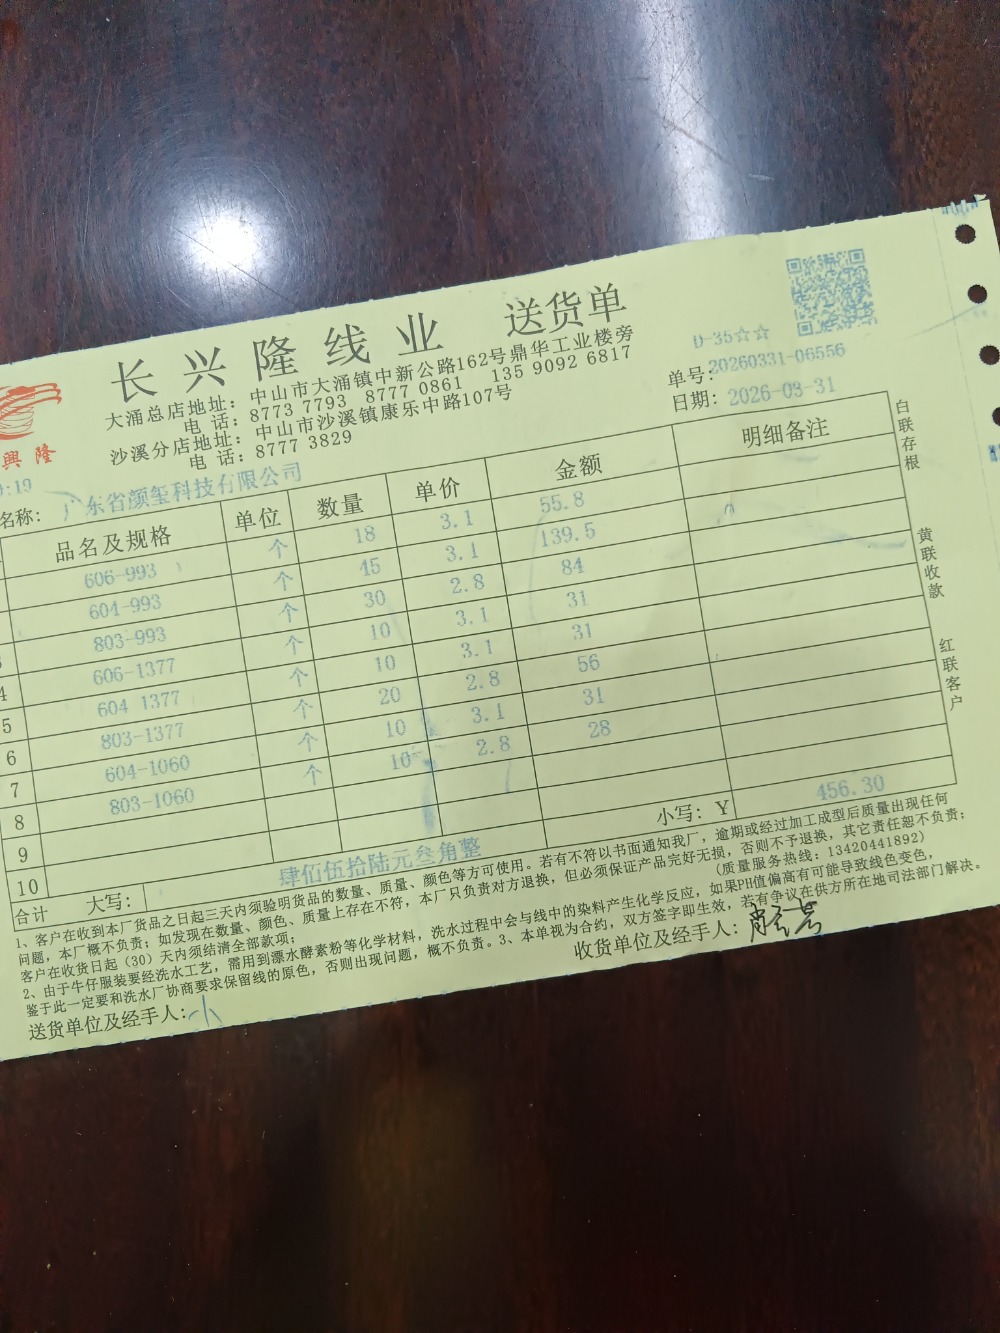 长兴隆线业 送货单
大涌总店地址：中山市大涌镇中新公路162号鼎华工业楼旁
电 话：8773 7793 8777 0861 135 9092 6817
沙溪分店地址：中山市沙溪镇康乐中路107号
电 话：8777 3829
興隆
D-35☆☆
单号：20260331-06556
日期：2026-03-31
:19
名称：广东省颜玺科技有限公司
品名及规格 单位 数量 单价 金额 明细备注
606-993 个 18 3.1 55.8
604-993 个 45 3.1 139.5
3 803-993 个 30 2.8 84
4 606-1377 个 10 3.1 31
5 604 1377 个 10 3.1 31
6 803-1377 个 20 2.8 56
7 604-1060 个 10 3.1 31
8 803-1060 个 10 2.8 28
9
10
合计 大写：肆佰伍拾陆元叁角整 小写：Y 456.30
白联存根
黄联收款
红联客户
1、客户在收到本厂货品之日起三天内须验明货品的数量、质量、颜色等方可使用。若有不符以书面通知我厂，逾期或经过加工成型后质量出现任何
问题，本厂概不负责；如发现在数量、颜色、质量上存在不符，本厂只负责对方退换，但必须保证产品完好无损，否则不予退换，其它责任恕不负责；
客户在收货日起（30）天内须结清全部款项； （质量服务热线：13420441892）
2、由于牛仔服装要经洗水工艺，需用到漂水酵素粉等化学材料，洗水过程中会与线中的染料产生化学反应，如果PH值偏高有可能导致线色变色，
鉴于此一定要和洗水厂协商要求保留线的原色，否则出现问题，概不负责。3、本单视为合约，双方签字即生效，若有争议在供方所在地司法部门解决。
送货单位及经手人： 收货单位及经手人：